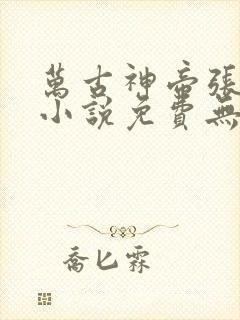 萬古神帝張
小說免費無
喬匕霖